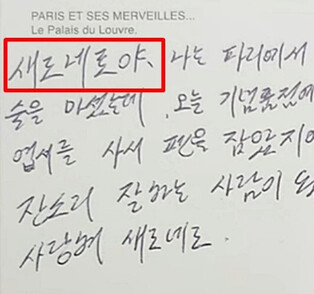 PARIS ET SES MERVEILLES...
Le Palais du Louvre.
새로네로야, 나는 파리에서
술을 마셨는데 오늘 기념품점에
엽서를 사서 펜을 잡았지
잔소리 잘하는 사람이
사랑해 새로네로.